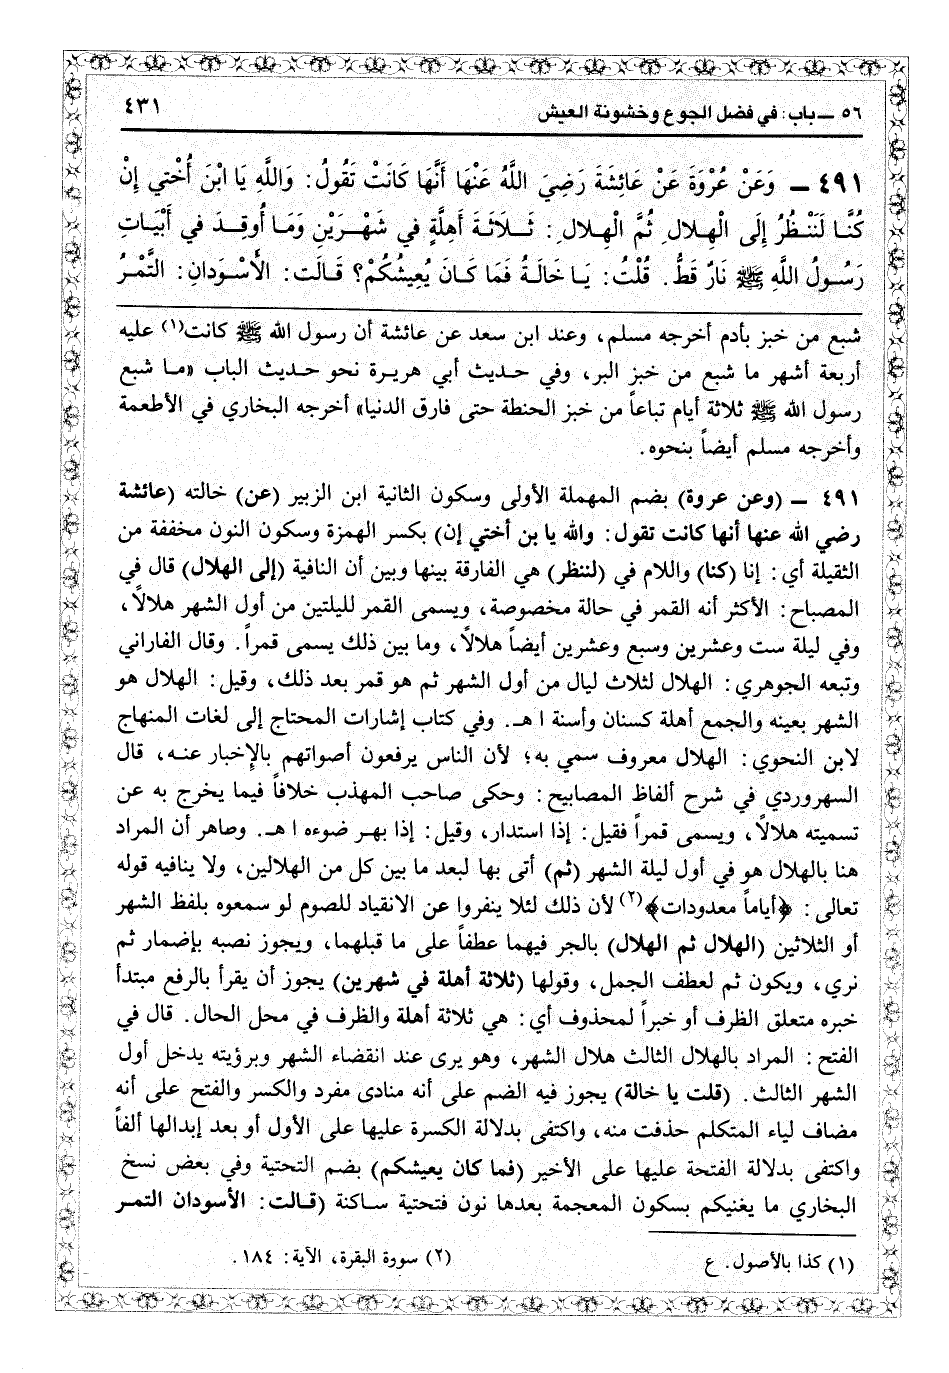 ٥٦ ــ باب: في فضل الجوع وخشونة العيش ٤٣١
٤٩١ ــ وَعَنْ عُرْوَةَ عَنْ عَائِشَةَ رَضِيَ اللَّهُ عَنْهَا أَنَّهَا كَانَتْ تَقُولُ: وَاللَّهِ يَا ابْنَ أُخْتِي إِنْ
كُنَّا لَنَنْظُرُ إِلَى الْهِلالِ ثُمَّ الْهِلالِ: ثَلاثَةَ أَهِلَّةٍ فِي شَهْرَيْنِ وَمَا أُوقِدَ فِي أَبْيَاتِ
رَسُولُ اللَّهِ ﷺ نَارٌ قَطُّ. قُلْتُ: يَا خَالَةُ فَمَا كَانَ يُعِيشُكُمْ؟ قَالَت: الأَسْوَدانِ: التَّمْرُ
شبع من خبز بأدم أخرجه مسلم، وعند ابن سعد عن عائشة أن رسول الله ﷺ كانت(١) عليه
أربعة أشهر ما شبع من خبز البر، وفي حديث أبي هريرة نحو حديث الباب «ما شبع
رسول الله ﷺ ثلاثة أيام تباعاً من خبز الحنطة حتى فارق الدنيا» أخرجه البخاري في الأطعمة
وأخرجه مسلم أيضاً بنحوه.
٤٩١ ــ (وعن عروة) بضم المهملة الأولى وسكون الثانية ابن الزبير (عن) خالته (عائشة
رضي الله عنها أنها كانت تقول: والله يا بن أختي إن) بكسر الهمزة وسكون النون مخففة من
الثقيلة أي: إنا (كنا) واللام في (لننظر) هي الفارقة بينها وبين أن النافية (إلى الهلال) قال في
المصباح: الأكثر أنه القمر في حالة مخصوصة، ويسمى القمر لليلتين من أول الشهر هلالاً،
وفي ليلة ست وعشرين وسبع وعشرين أيضاً هلالاً، وما بين ذلك يسمى قمراً. وقال الفاراني
وتبعه الجوهري: الهلال لثلاث ليال من أول الشهر ثم هو قمر بعد ذلك، وقيل: الهلال هو
الشهر بعينه والجمع أهلة كسنان وأسنة اهـ. وفي كتاب إشارات المحتاج إلى لغات المنهاج
لابن النحوي: الهلال معروف سمي به؛ لأن الناس يرفعون أصواتهم بالإخبار عنه، قال
السهروردي في شرح ألفاظ المصابيح: وحكى صاحب المهذب خلافاً فيما يخرج به عن
تسميته هلالاً، ويسمى قمراً فقيل: إذا استدار، وقيل: إذا بهر ضوءه اهـ. وصاهر أن المراد
هنا بالهلال هو في أول ليلة الشهر (ثم) أتى بها لبعد ما بين كل من الهلالين، ولا ينافيه قوله
تعالى: ﴿أياماً معدودات﴾(٢) لأن ذلك لئلا ينفروا عن الانقياد للصوم لو سمعوه بلفظ الشهر
أو الثلاثين (الهلال ثم الهلال) بالجر فيهما عطفاً على ما قبلهما، ويجوز نصبه بإضمار ثم
نري، ويكون ثم لعطف الجمل، وقولها (ثلاثة أهلة في شهرين) يجوز أن يقرأ بالرفع مبتدأ
خبره متعلق الظرف أو خبراً لمحذوف أي: هي ثلاثة أهلة والظرف في محل الحال. قال في
الفتح: المراد بالهلال الثالث هلال الشهر، وهو يرى عند انقضاء الشهر وبرؤيته يدخل أول
الشهر الثالث. (قلت يا خالة) يجوز فيه الضم على أنه منادى مفرد والكسر والفتح على أنه
مضاف لياء المتكلم حذفت منه، واكتفى بدلالة الكسرة عليها على الأول أو بعد إبدالها ألفاً
واكتفى بدلالة الفتحة عليها على الأخير (فما كان يعيشكم) بضم التحتية وفي بعض نسخ
البخاري ما يغنيكم بسكون المعجمة بعدها نون فتحتية ساكنة (قالت: الأسودان التمر
(١) كذا بالأصول. ع (٢) سورة البقرة، الآية: ١٨٤.